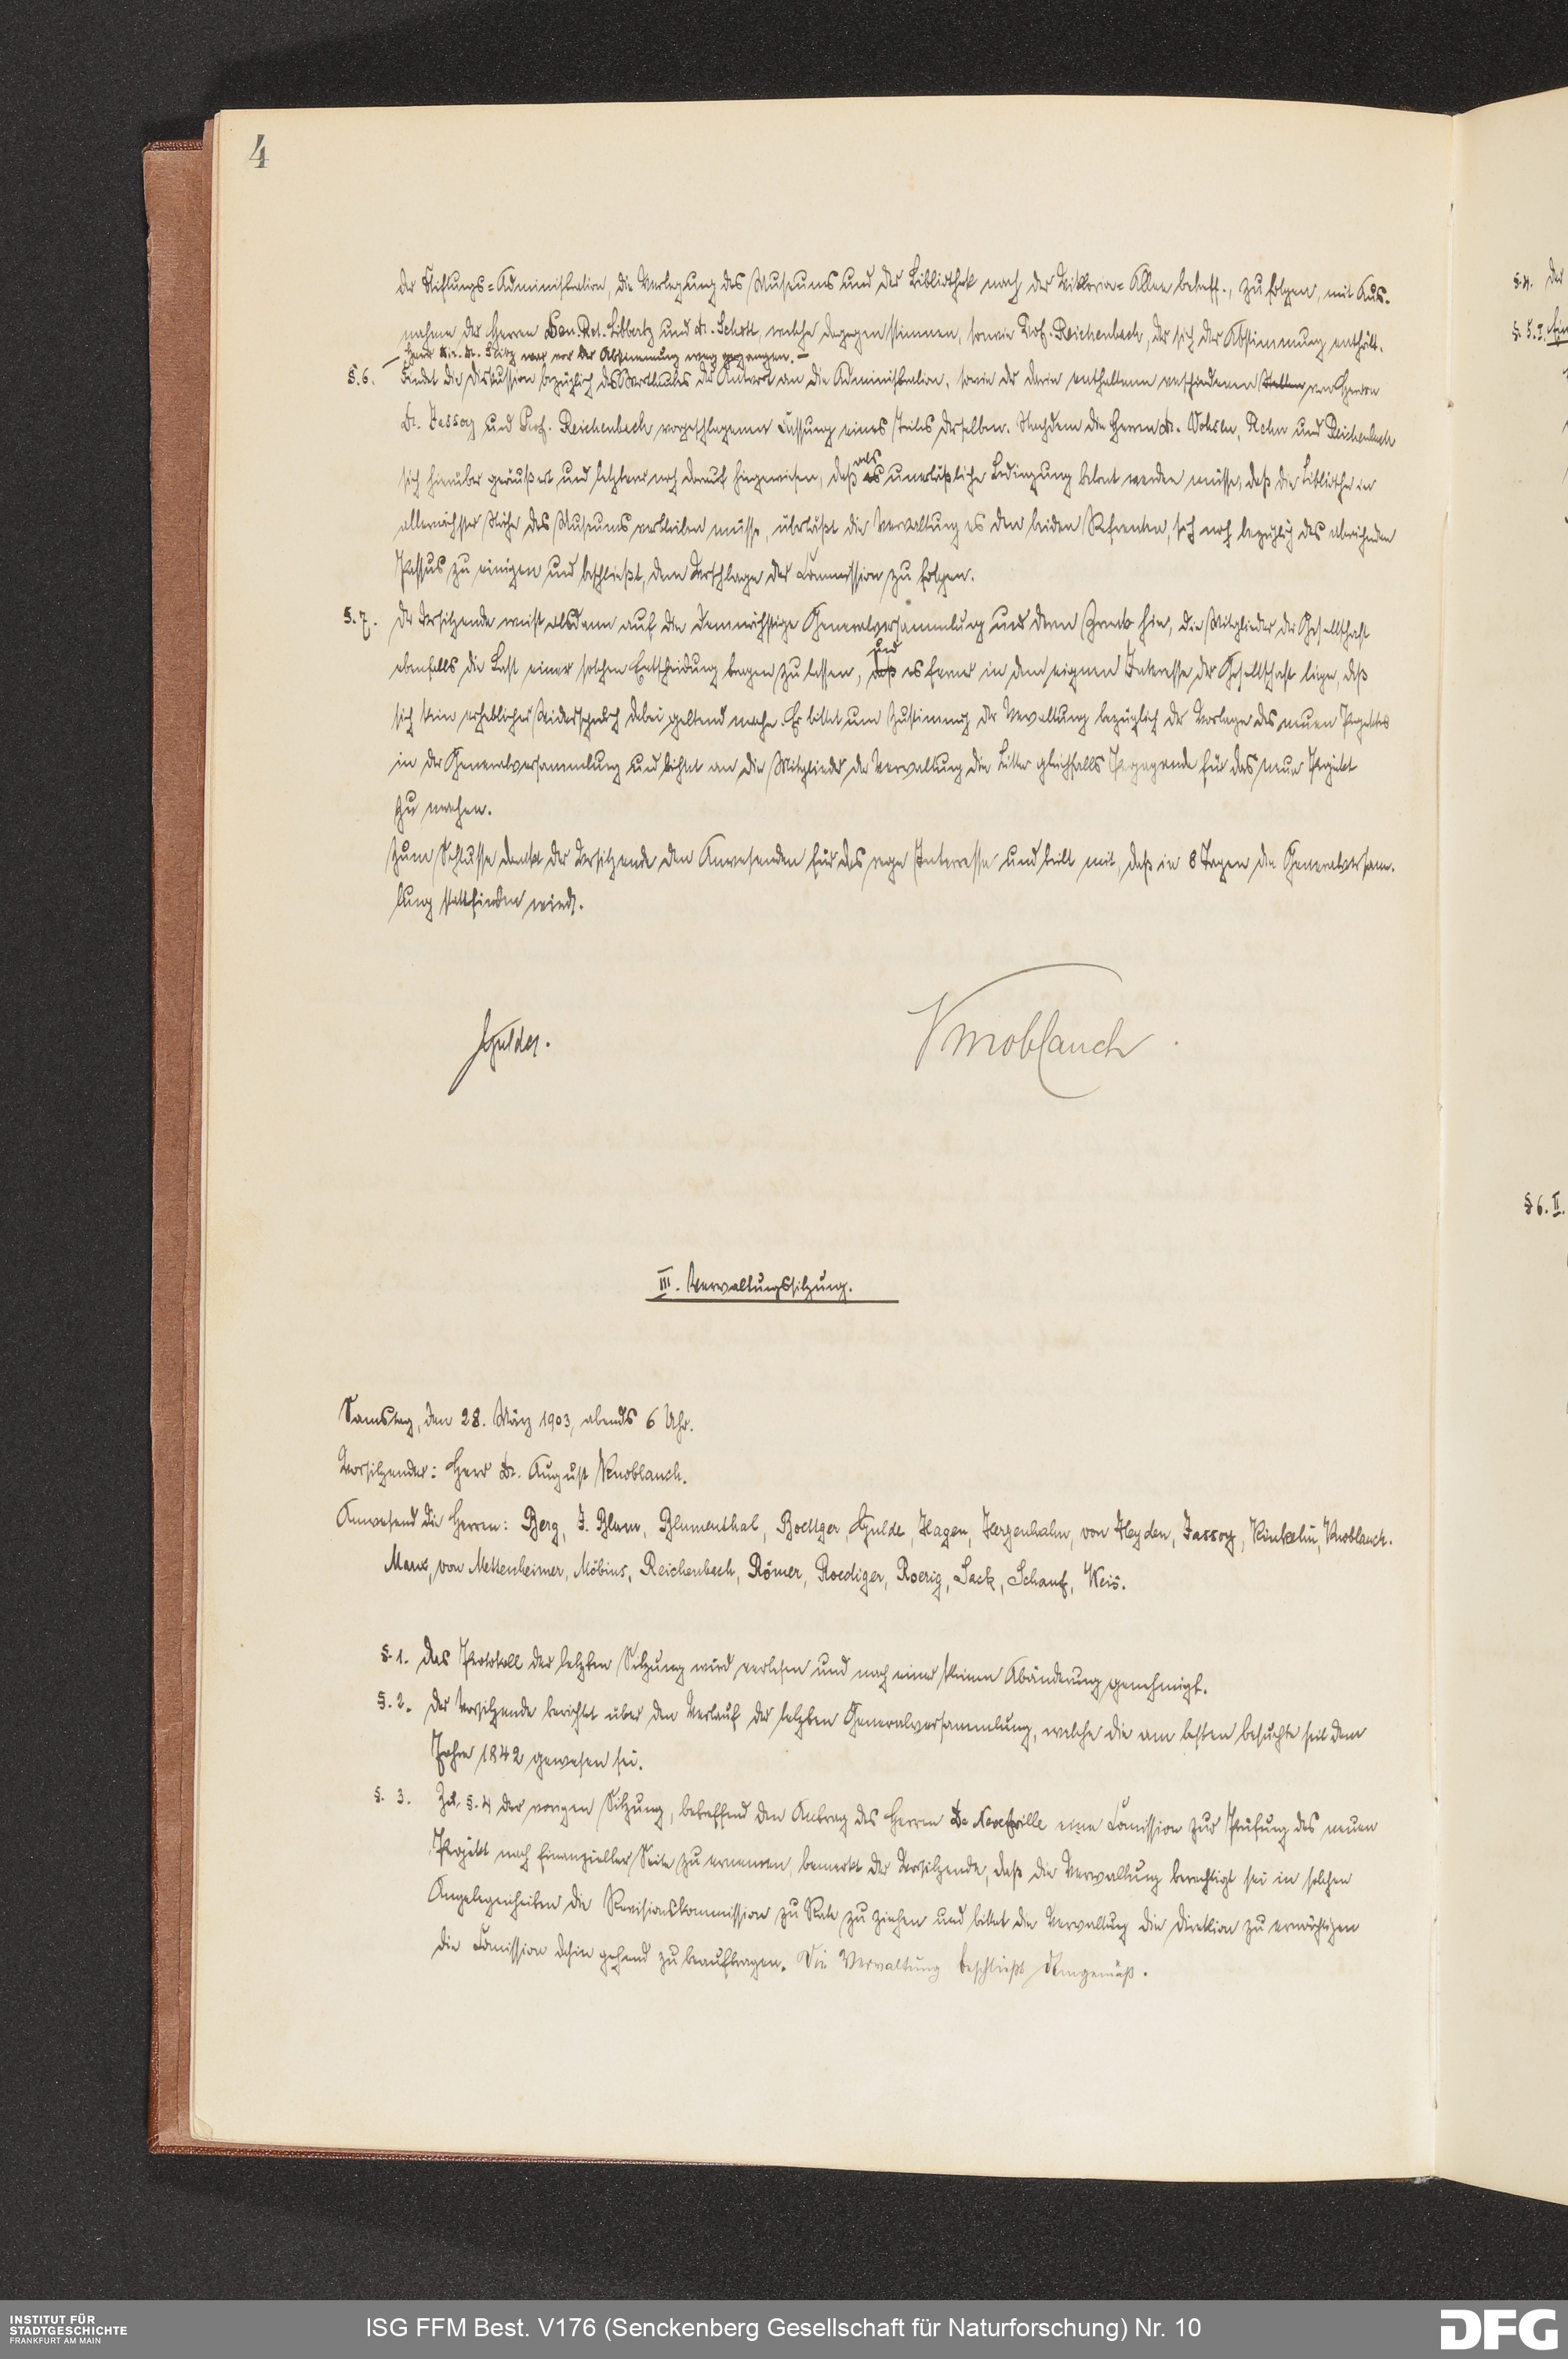 4
der Stiftungs-Administration, die Verlegung des Museums und der Bibliothek nach der Viktoria-Allee betreff., zu folgen, mit Aus-
nahme der Herren San. Rat. Libbertz und Dr. Schott, welche dagegen stimmen, sowie Prof. Reichenbach, der sich der Abstimmung enthält.
– Herr Dr. war vor der Abstimmung weg gegangen. –
§. 6. Findet die Diskussion bezüglich des Wortlauts der Antwort an die Administration, sowie der darin enthaltenen verschiedenen von Herrn
Dr. Jassoy und Prof. Reichenbach vorgeschlagenen Fassung eines Teiles derselben. Nachdem die Herren Dr. Vohsen, Rehn und Reichenbach
sich hierüber geäußert und letzterer noch darauf hingewiesen, daß als unerläßliche Bedingung betont werden müsse, daß die Bibliothek in
allernächster Nähe des Museums verbleiben müsse, überläßt die Verwaltung es den beiden Referenten, sich noch bezüglich des
Passus zu einigen und beschließt, dem Vorschlage der Commission zu folgen.
§. 7. Der Vorsitzende weist alsdann auf die demnächstige Generalversammlung und deren Zweck hin, die Mitglieder der Gesellschaft
ebenfalls die Last einer solchen Entscheidung tragen zu lassen, und es ferner in dem eignen Interesse der Gesellschaft liege, daß
sich kein erheblicher Widerspruch dabei geltend mache. Er bittet um Zustimmung der Verwaltung bezüglich der Vorlage des neuen Projektes
in der Generalversammlung und richtet an die Mitglieder der Verwaltung die Bitte gleichfalls Propaganda für das neue Projekt
zu machen.
Zum Schlusse dankt der Vorsitzende den Anwesenden für das rege Interesse und teilt mit, daß in 8 Tagen die Generalversam-
lung stattfinden wird.
Gulde. Knoblauch.
III. Verwaltungssitzung.
Samstag, den 28. März 1903, abends 6 Uhr.
Vorsitzender: Herr Dr. August Knoblauch.
Anwesend die Herren: Berg, J. Blum, Blumenthal, Boettger, Gulde, Hagen, Hergenhahn, von Heyden, Jassoy, Kinkelin, Knoblauch.
Marx, von Mettenheimer, Möbius, Reichenbach, Römer, Roediger, Roerig, Sack, Schauf, Weis.
§. 1. Das Protokoll der letzten Sitzung wird verlesen und nach einer kleinen Abänderung genehmigt.
§. 2. Der Vorsitzende berichtet über den Verlauf der letzten Generalversammlung, welche die am besten besuchte seit dem
Jahre 1842 gewesen sei.
§. 3. Zu §. 4 der vorigen Sitzung, betreffend den Antrag des Herren De Neufville eine Comission zur Prüfung des neuen
Projekt nach finanzieller Seite zu ernennen, bemerkt der Vorsitzende, daß die Verwaltung berechtigt sei in solchen
Angelegenheiten die Revisionskommission zu Rate zu ziehen und bittet die Verwaltung die Direktion zu ermächtigen
die Comission dahin gehend zu beauftragen. Die Verwaltung beschließt demgemäß.
§. 4. Der
§. 5. I.
§ 6. II.
INSTITUT FÜR
STADTGESCHICHTE
FRANKFURT AM MAIN
ISG FFM Best. V176 (Senckenberg Gesellschaft für Naturforschung) Nr. 10
DFG